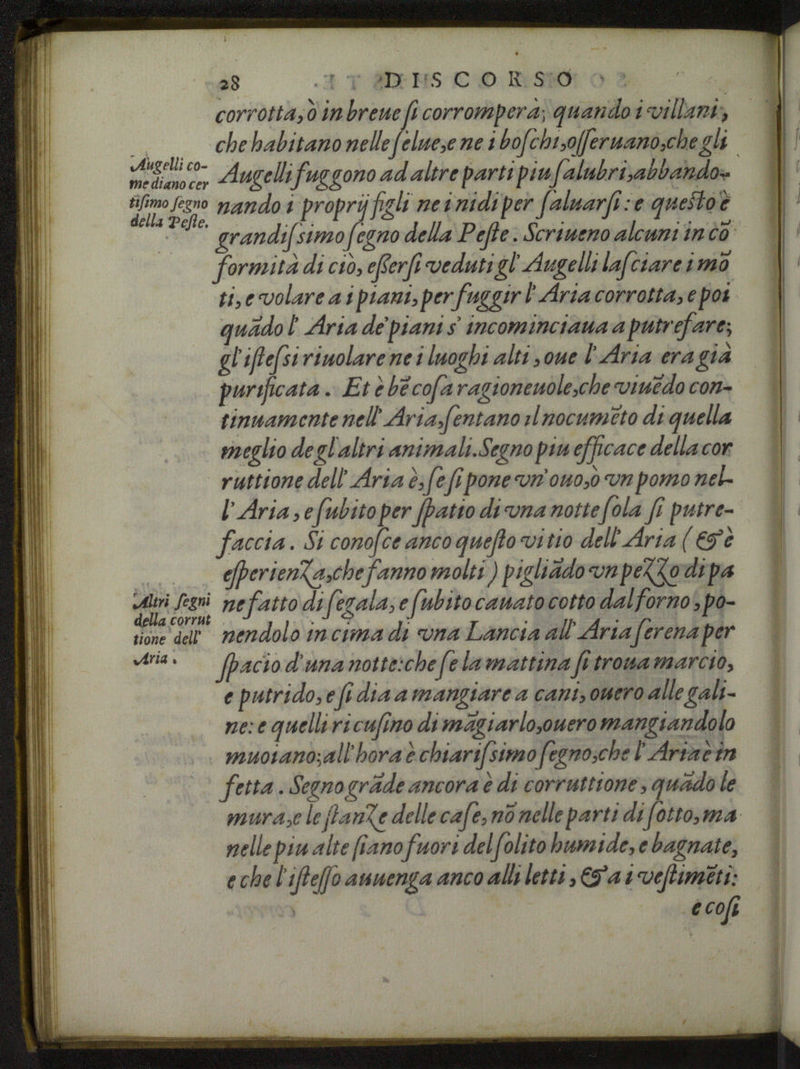 28 DISCORSO
corrotta, ò in breue si corromperà; quando i villani,
che habitano nelle selue, e ne i boschi, osseruano, che gli
Augelli fuggono ad altre parti piu salubri, abbando-
nando i proprij figli ne i nidi per saluarsi: e questo è
grandissimo segno della Peste. Scriueno alcuni in cō
formità di ciò, eßersi veduti gl' Augelli lasciare i mō
ti, e volare a i piani, per fuggir l' Aria corrotta, e poi
quādo l' Aria de' piani s' incominciaua a putrefare;
gl' istessi riuolare ne i luoghi alti, oue l' Aria era già
purificata. Et è bē cosa ragioneuole, che viuēdo con-
tinuamente nell' Aria, sentano il nocumēto di quella
meglio degl' altri animali. Segno piu efficace della cor
ruttione dell' Aria è, se si pone vn' ouo, ò vn pomo nel-
l' Aria, e subito per spatio di vna notte sola si putre-
faccia. Si conosce anco questo vitio dell' Aria ( & è
esperienza, che fanno molti ) pigliādo vn pezzo di pa
ne fatto di segala, e subito cauato cotto dal forno, po-
nendolo in cima di vna Lancia all' Aria serena per
spacio d'una notte: che se la mattina si troua marcio,
e putrido, e si dia a mangiare a cani, ouero alle gali-
ne: e quelli ricusino di māgiarlo, ouero mangiandolo
muoiano; all' hora è chiarissimo segno, che l' Aria è in
fetta. Segno grāde ancora è di corruttione, quādo le
mura, e le stanze delle case, nō nelle parti di sotto, ma
nelle piu alte siano fuori del solito humide, e bagnate,
e che l' istesso auuenga anco alli letti, & a i vestimēti:
e cosi
Augelli co-
me diano cer
tissimo segno
della Peste.
Altri segni
della corrut
tione dell'
Aria.